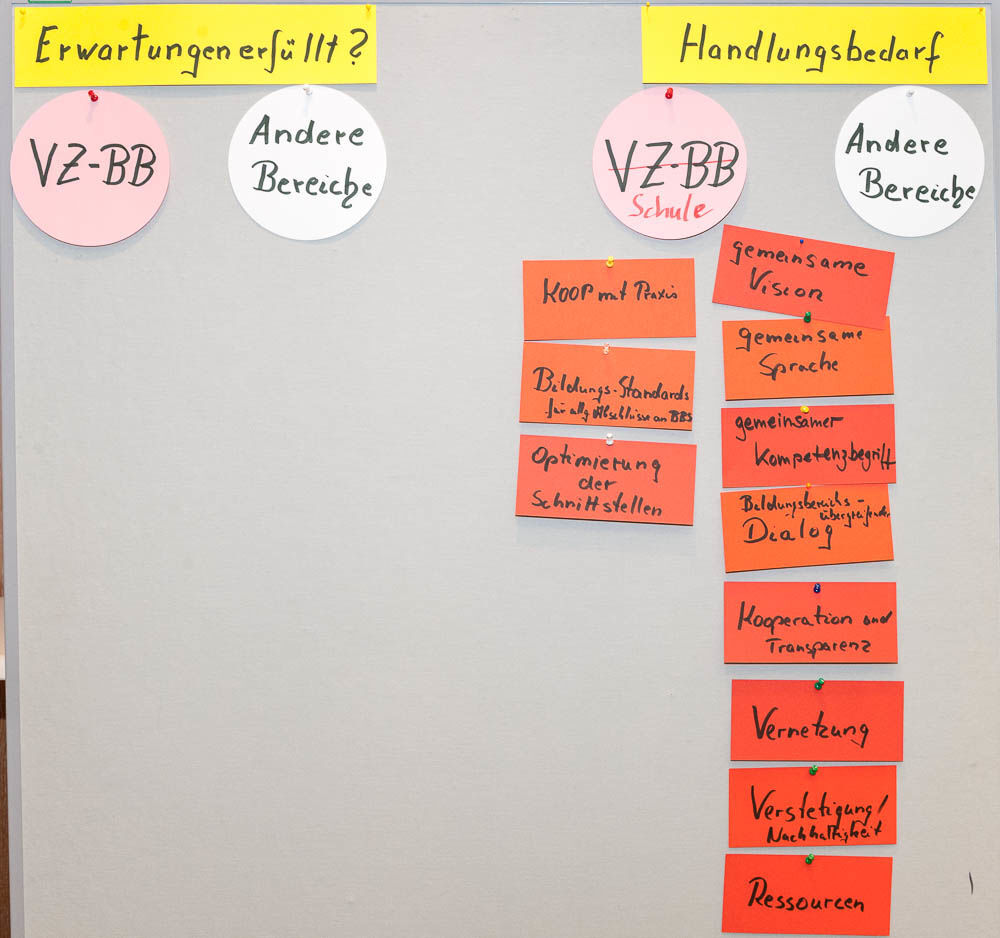 Erwartungen erfüllt?
VZ-BB
Andere
Bereiche
Handlungsbedarf
VZ-BB
Schule
Andere
Bereiche
Koop mit Praxis
Bildungs-Standards
für allg Abschlüsse an BBS
Optimierung
der
Schnittstellen
gemeinsame
Vision
gemeinsame
Sprache
gemeinsamer
Kompetenzbegriff
Bildungsbereichs-
übergreifender
Dialog
Kooperation und
Transparenz
Vernetzung
Verstetigung/
Nachhaltigkeit
Ressourcen